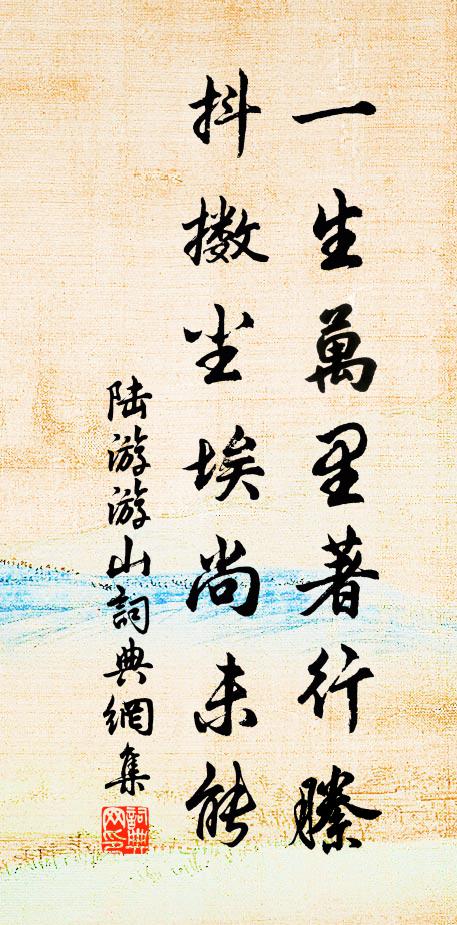 一生萬里著行縢
抖擻尘埃尚未能
陆游游山詞典網集
詞典网印